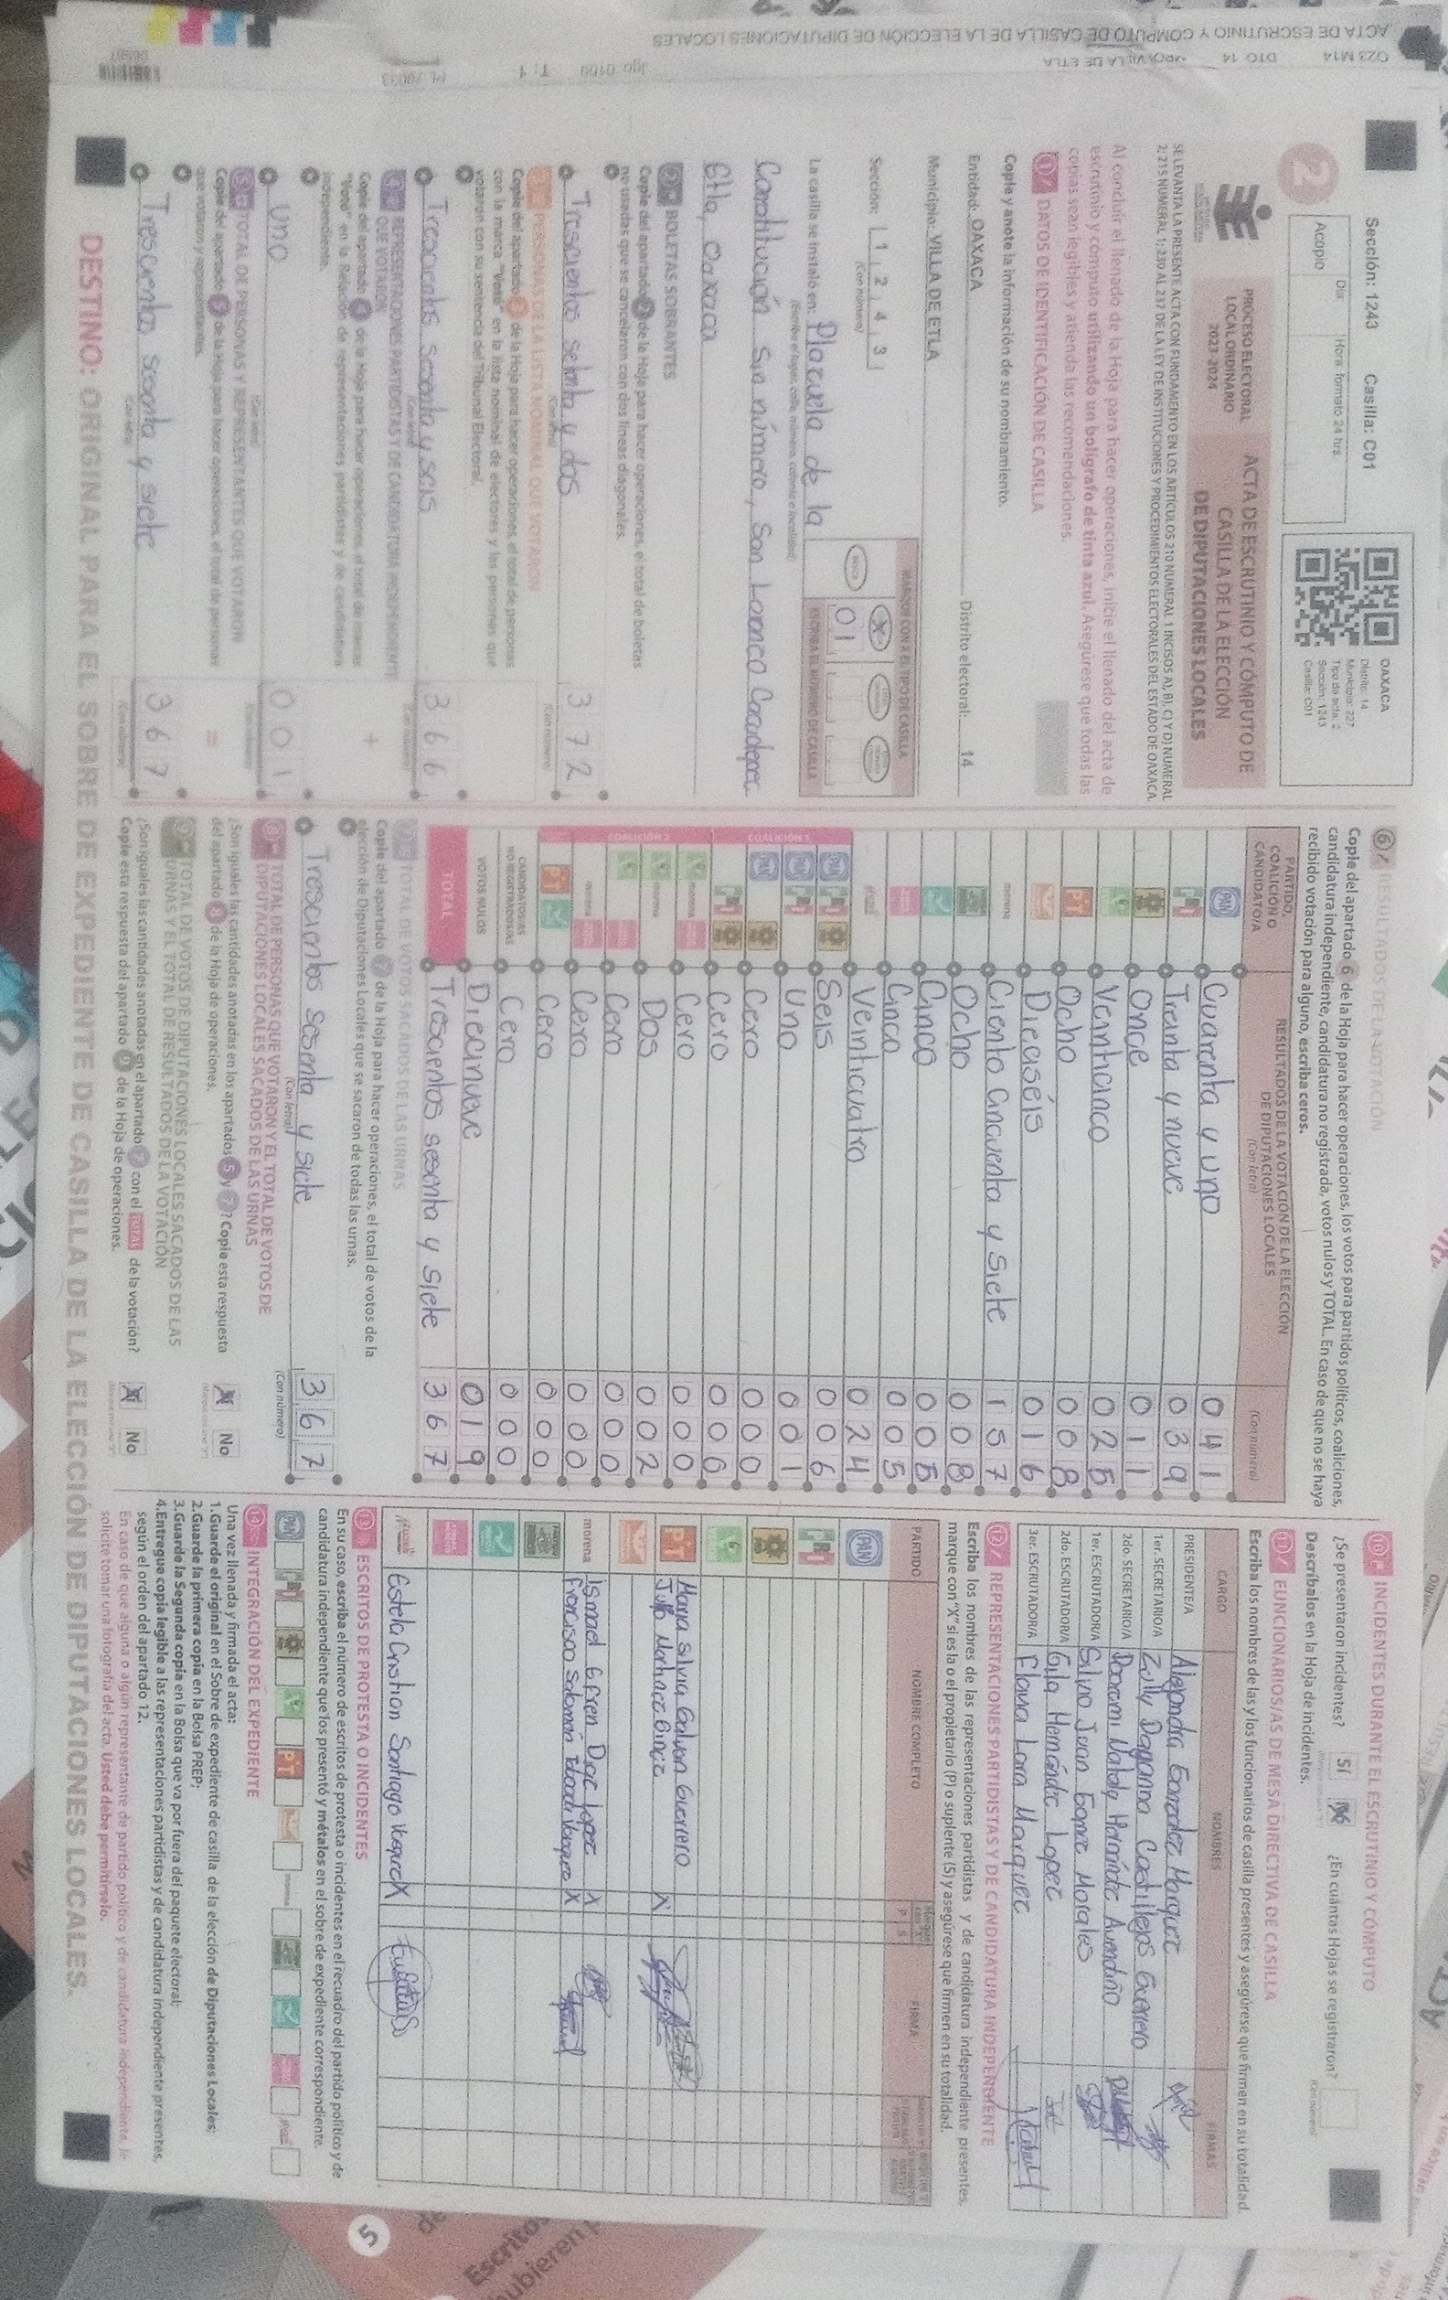 Sección: 1243 Casilla: C01
2
Acopio
Día
Hora: formato 24 hrs.
OAXACA
Distrito: 14
Municipio: 227
Tipo de acta: 2
Sección: 1243
Casilla: C01
PROCESO ELECTORAL
LOCAL ORDINARIO
2023-2024
ACTA DE ESCRUTINIO Y CÓMPUTO DE
CASILLA DE LA ELECCIÓN
DE DIPUTACIONES LOCALES
SE LEVANTA LA PRESENTE ACTA CON FUNDAMENTO EN LOS ARTÍCULOS 210 NUMERAL 1 INCISOS A), B), C) Y D) NUMERAL
2; 215 NUMERAL 1; 230 AL 237 DE LA LEY DE INSTITUCIONES Y PROCEDIMIENTOS ELECTORALES DEL ESTADO DE OAXACA.
Al concluir el llenado de la Hoja para hacer operaciones, inicie el llenado del acta de
escrutinio y cómputo utilizando un bolígrafo de tinta azul. Asegúrese que todas las
copias sean legibles y atienda las recomendaciones.
1 DATOS DE IDENTIFICACIÓN DE CASILLA
Copie y anote la información de su nombramiento.
Entidad: OAXACA Distrito electoral: 14
Municipio: VILLA DE ETLA
Sección: 1 2 4 3
(Con número)
MARQUE CON X EL TIPO DE CASILLA
X
01
ESCRIBA EL NÚMERO DE CASILLA
La casilla se instaló en: Plazuela de la
(Escriba el lugar, calle, número, colonia o localidad)
Constitución sin número, San Lorenzo Cacaotepec
Etla, Oaxaca
2 BOLETAS SOBRANTES
Copie del apartado 2 de la Hoja para hacer operaciones, el total de boletas
no usadas que se cancelaron con dos líneas diagonales.
Trescientos setenta y dos 372
(Con letra) (Con número)
3 PERSONAS DE LA LISTA NOMINAL QUE VOTARON
Copie del apartado 3 de la Hoja para hacer operaciones, el total de personas
con la marca "Votó" en la lista nominal de electores y las personas que
votaron con su sentencia del Tribunal Electoral.
Trescientos sesenta y seis 366
(Con letra) (Con número)
4 REPRESENTACIONES PARTIDISTAS Y DE CANDIDATURA INDEPENDIENTE
QUE VOTARON
Copie del apartado 4 de la Hoja para hacer operaciones, el total de marcas
"Votó" en la Relación de representaciones partidistas y de candidatura
independiente.
+
Uno 001
(Con letra)
5 TOTAL DE PERSONAS Y REPRESENTANTES QUE VOTARON
Copie del apartado 5 de la Hoja para hacer operaciones, el total de personas
que votaron y representantes.
=
Trescientos sesenta y siete 367
(Con letra) (Con número)
6 RESULTADOS DE LA VOTACIÓN
Copie del apartado 6 de la Hoja para hacer operaciones, los votos para partidos políticos, coaliciones,
candidatura independiente, candidatura no registrada, votos nulos y TOTAL. En caso de que no se haya
recibido votación para alguno, escriba ceros.
PARTIDO,
COALICIÓN O
CANDIDATO/A
RESULTADOS DE LA VOTACIÓN DE LA ELECCIÓN
DE DIPUTACIONES LOCALES
(Con letra)
(Con número)
PAN Cuarenta y uno 041
PRI Treinta y nueve 039
Once 011
Veinticinco 025
PT Ocho 008
Dieciséis 016
morena Ciento cincuenta y siete 157
Ocho 008
Cinco 005
Cinco 005
Veinticuatro 024
COALICIÓN 1
PAN PRI Seis 006
PAN PRI Uno 001
PAN Cero 000
PRI Cero 000
COALICIÓN 2
morena Cero 000
morena Dos 002
Cero 000
morena Cero 000
PT Cero 000
CANDIDATOS/AS
NO REGISTRADOS/AS Cero 000
VOTOS NULOS Diecinueve 019
TOTAL Trescientos sesenta y siete 367
7 TOTAL DE VOTOS SACADOS DE LAS URNAS
Copie del apartado 7 de la Hoja para hacer operaciones, el total de votos de la
elección de Diputaciones Locales que se sacaron de todas las urnas.
Trescientos sesenta y siete 367
(Con letra) (Con número)
8 TOTAL DE PERSONAS QUE VOTARON Y EL TOTAL DE VOTOS DE
DIPUTACIONES LOCALES SACADOS DE LAS URNAS
¿Son iguales las cantidades anotadas en los apartados 5 y 7? Copie esta respuesta
del apartado 8 de la Hoja de operaciones.
X No
9 TOTAL DE VOTOS DE DIPUTACIONES LOCALES SACADOS DE LAS
URNAS Y EL TOTAL DE RESULTADOS DE LA VOTACIÓN
¿Son iguales las cantidades anotadas en el apartado 7 con el TOTAL de la votación?
Copie esta respuesta del apartado 9 de la Hoja de operaciones.
X No
10 INCIDENTES DURANTE EL ESCRUTINIO Y CÓMPUTO
¿Se presentaron incidentes? SÍ No ¿En cuántas Hojas se registraron?
Descríbalos en la Hoja de incidentes.
11 FUNCIONARIOS/AS DE MESA DIRECTIVA DE CASILLA
Escriba los nombres de las y los funcionarios de casilla presentes y asegúrese que firmen en su totalidad.
CARGO NOMBRES FIRMAS
PRESIDENTE/A Alejandra González Márquez
1er. SECRETARIO/A Zully Dayanna Castillejos Guerrero
2do. SECRETARIO/A Nataly Hernández Avendaño
1er. ESCRUTADOR/A Silvio Juan Gómez Morales
2do. ESCRUTADOR/A Gila Hernández López
3er. ESCRUTADOR/A Flavia Lara Márquez
12 REPRESENTACIONES PARTIDISTAS Y DE CANDIDATURA INDEPENDIENTE
Escriba los nombres de las representaciones partidistas y de candidatura independiente presentes,
marque con "X" si es la o el propietario (P) o suplente (S) y asegúrese que firmen en su totalidad.
PARTIDO NOMBRE COMPLETO P S FIRMA
PAN
PRI
PT Maya Silvia Galvan Guerrero X
morena Ismael Efren Diaz Lopez X
Narciso Salomón Vásquez X
Estela Cristian Santiago Vásquez X
13 ESCRITOS DE PROTESTA O INCIDENTES
En su caso, escriba el número de escritos de protesta o incidentes en el recuadro del partido político y de
candidatura independiente que los presentó y métalos en el sobre de expediente correspondiente.
PAN PRI PT morena
14 INTEGRACIÓN DEL EXPEDIENTE
Una vez llenada y firmada el acta:
1. Guarde el original en el Sobre de expediente de casilla de la elección de Diputaciones Locales;
2. Guarde la primera copia en la Bolsa PREP;
3. Guarde la Segunda copia en la Bolsa que va por fuera del paquete electoral;
4. Entregue copia legible a las representaciones partidistas y de candidatura independiente presentes,
según el orden del apartado 12.
En caso de que alguna o algún representante de partido político y de candidatura independiente, le
solicite tomar una fotografía del acta. Usted debe permitírselo.
DESTINO: ORIGINAL PARA EL SOBRE DE EXPEDIENTE DE CASILLA DE LA ELECCIÓN DE DIPUTACIONES LOCALES.
ACTA DE ESCRUTINIO Y CÓMPUTO DE CASILLA DE LA ELECCIÓN DE DIPUTACIONES LOCALES
023 M14 DTO 14 VILLA DE ETLA
5
Escritos